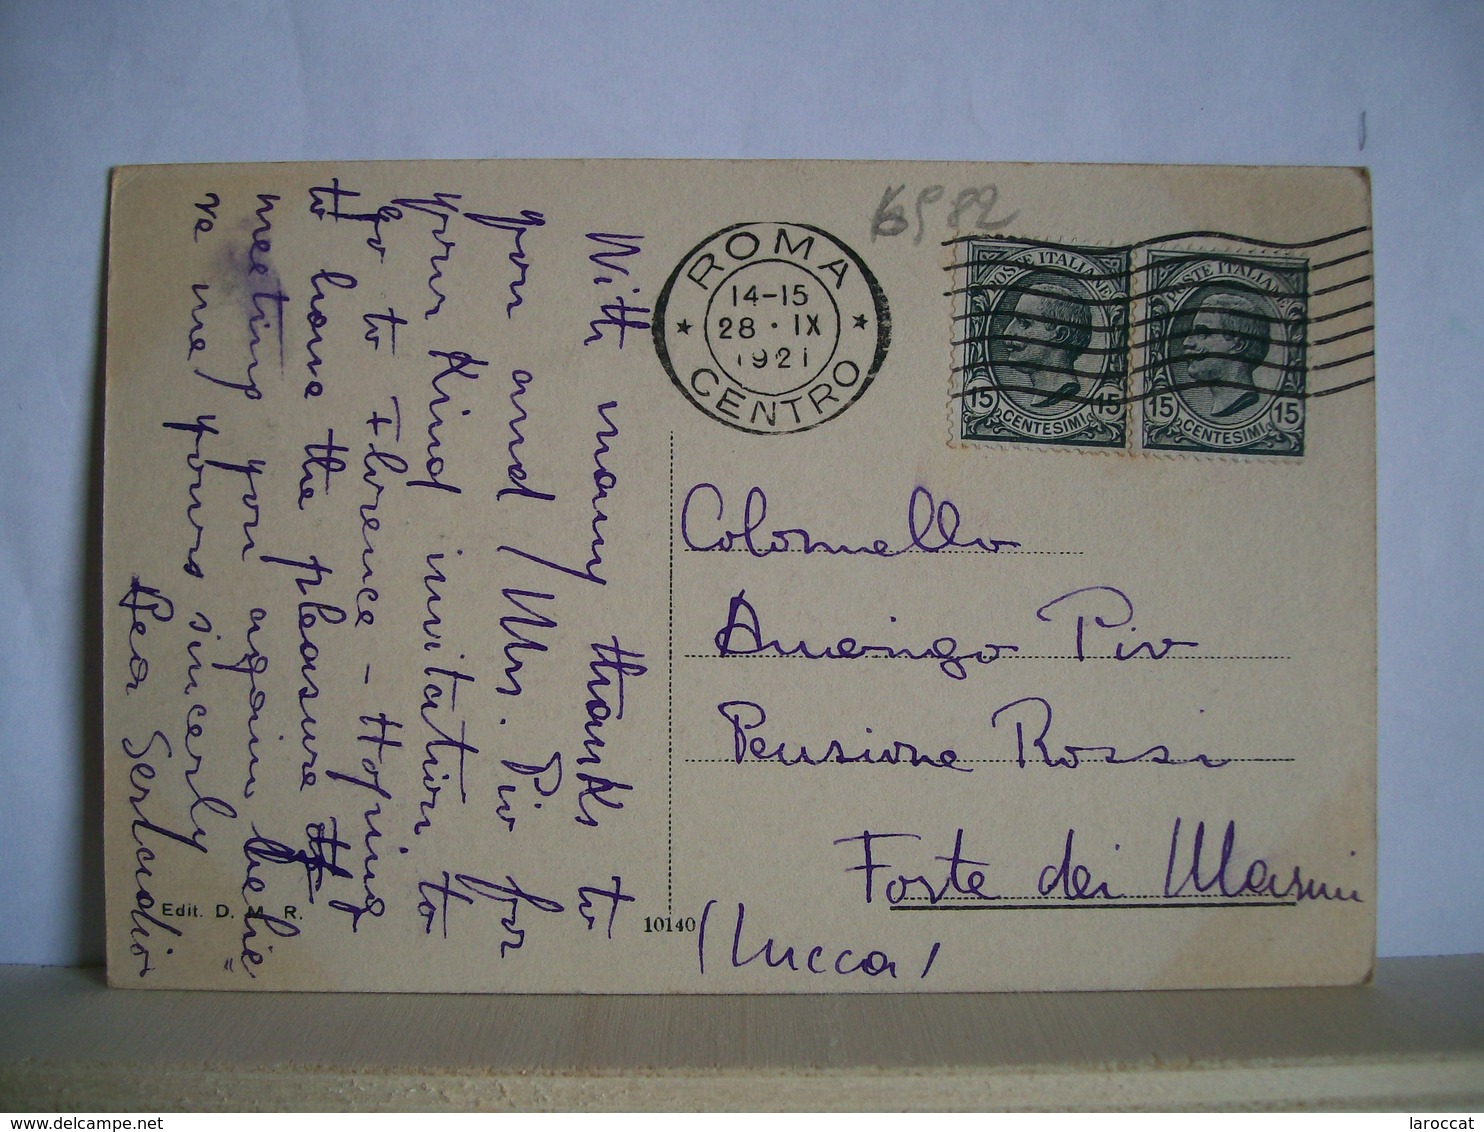 With many thanks to
you and Mrs. Pio for
your kind invitation to
go to Florence – Hoping
to have the pleasure of
meeting you again belie=
ve me yours sincerly
Bea
Edit. D. M. R.
10140
6982
ROMA
14-15
28 · IX
1921
CENTRO
POSTE ITALIANE
15 CENTESIMI 15
POSTE ITALIANE
15 CENTESIMI 15
Colonnello
Pio
Pensione Rossi
Forte dei Marmi
(Lucca)
www.delcampe.net
laroccat